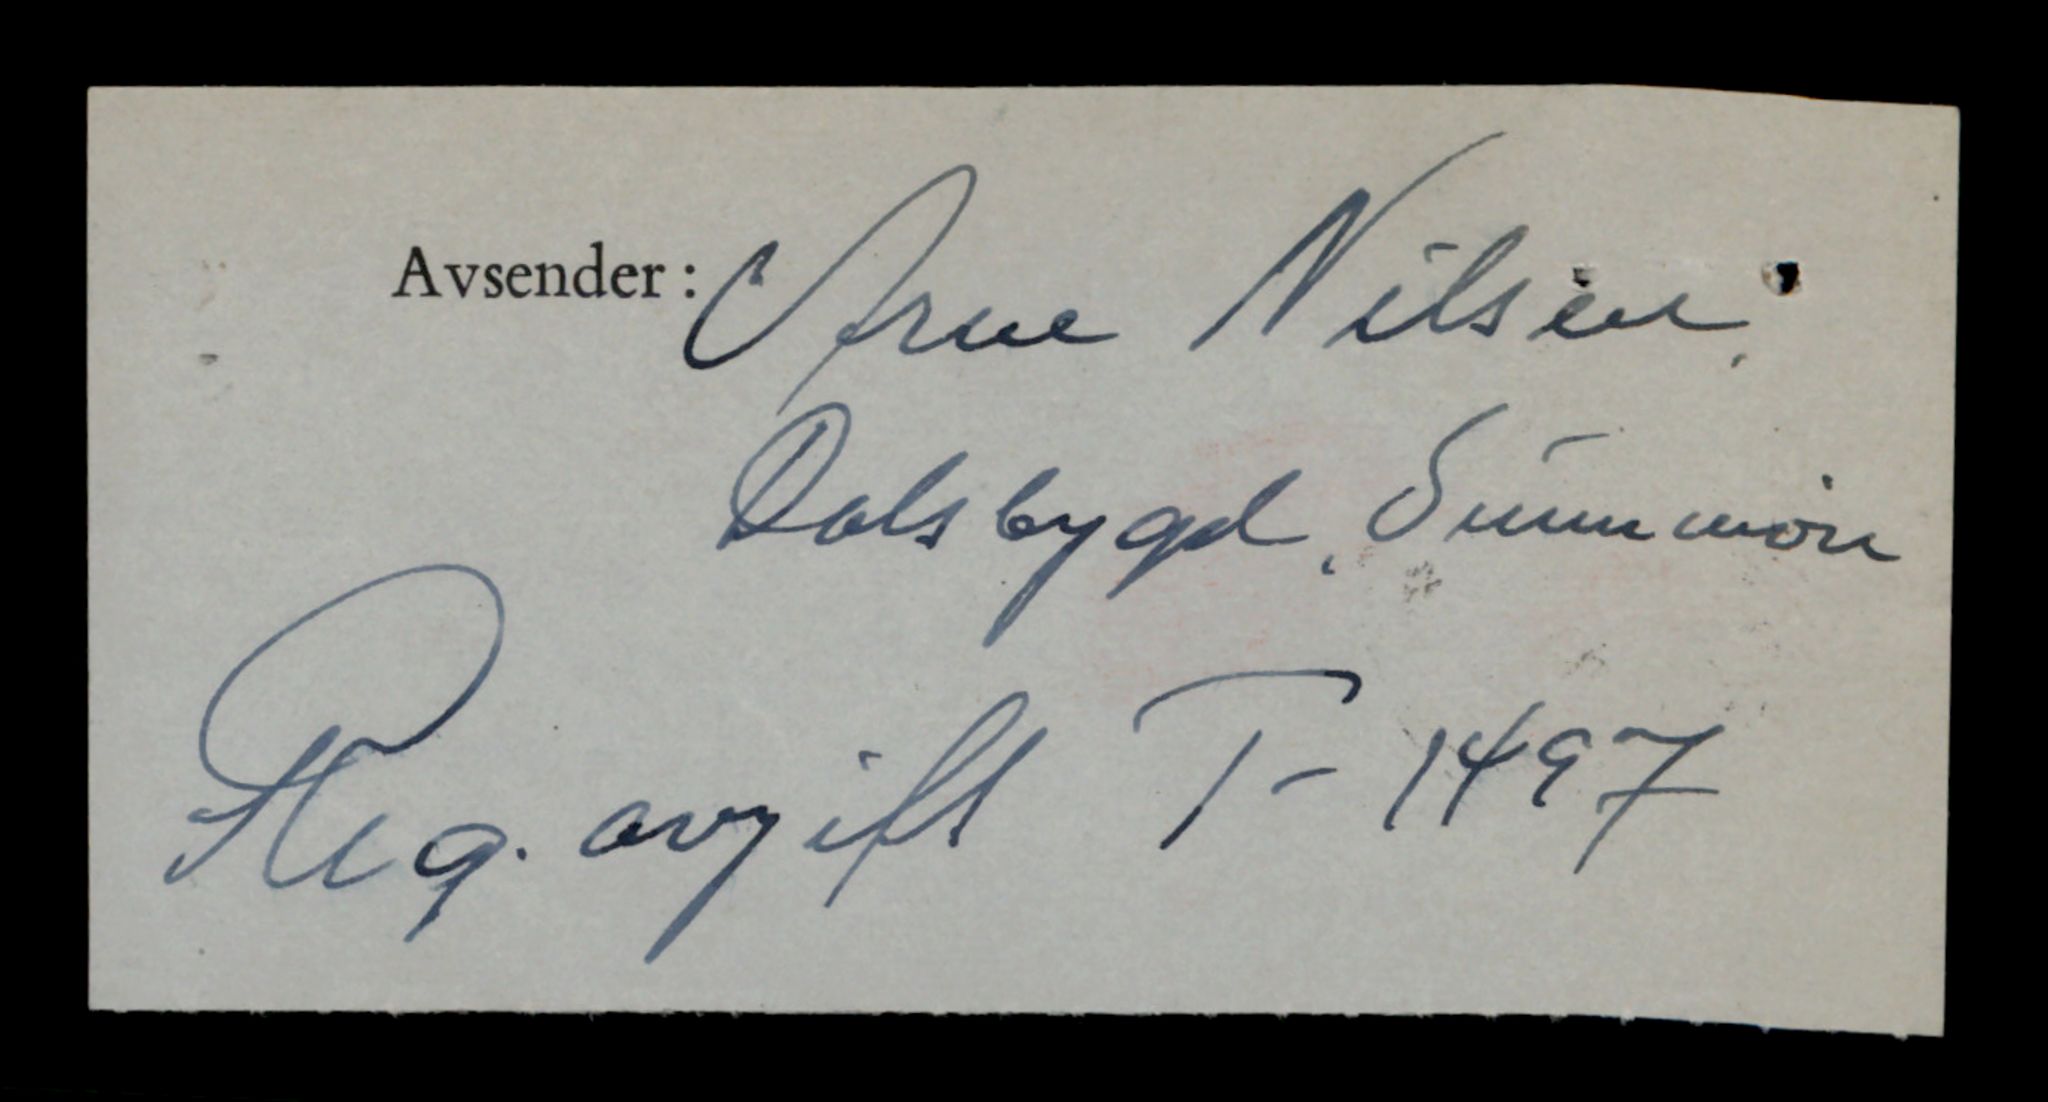 Avsender: Arne Nilsen,
Dalsbygd, Sunnmör
Reg. avgift T-1497